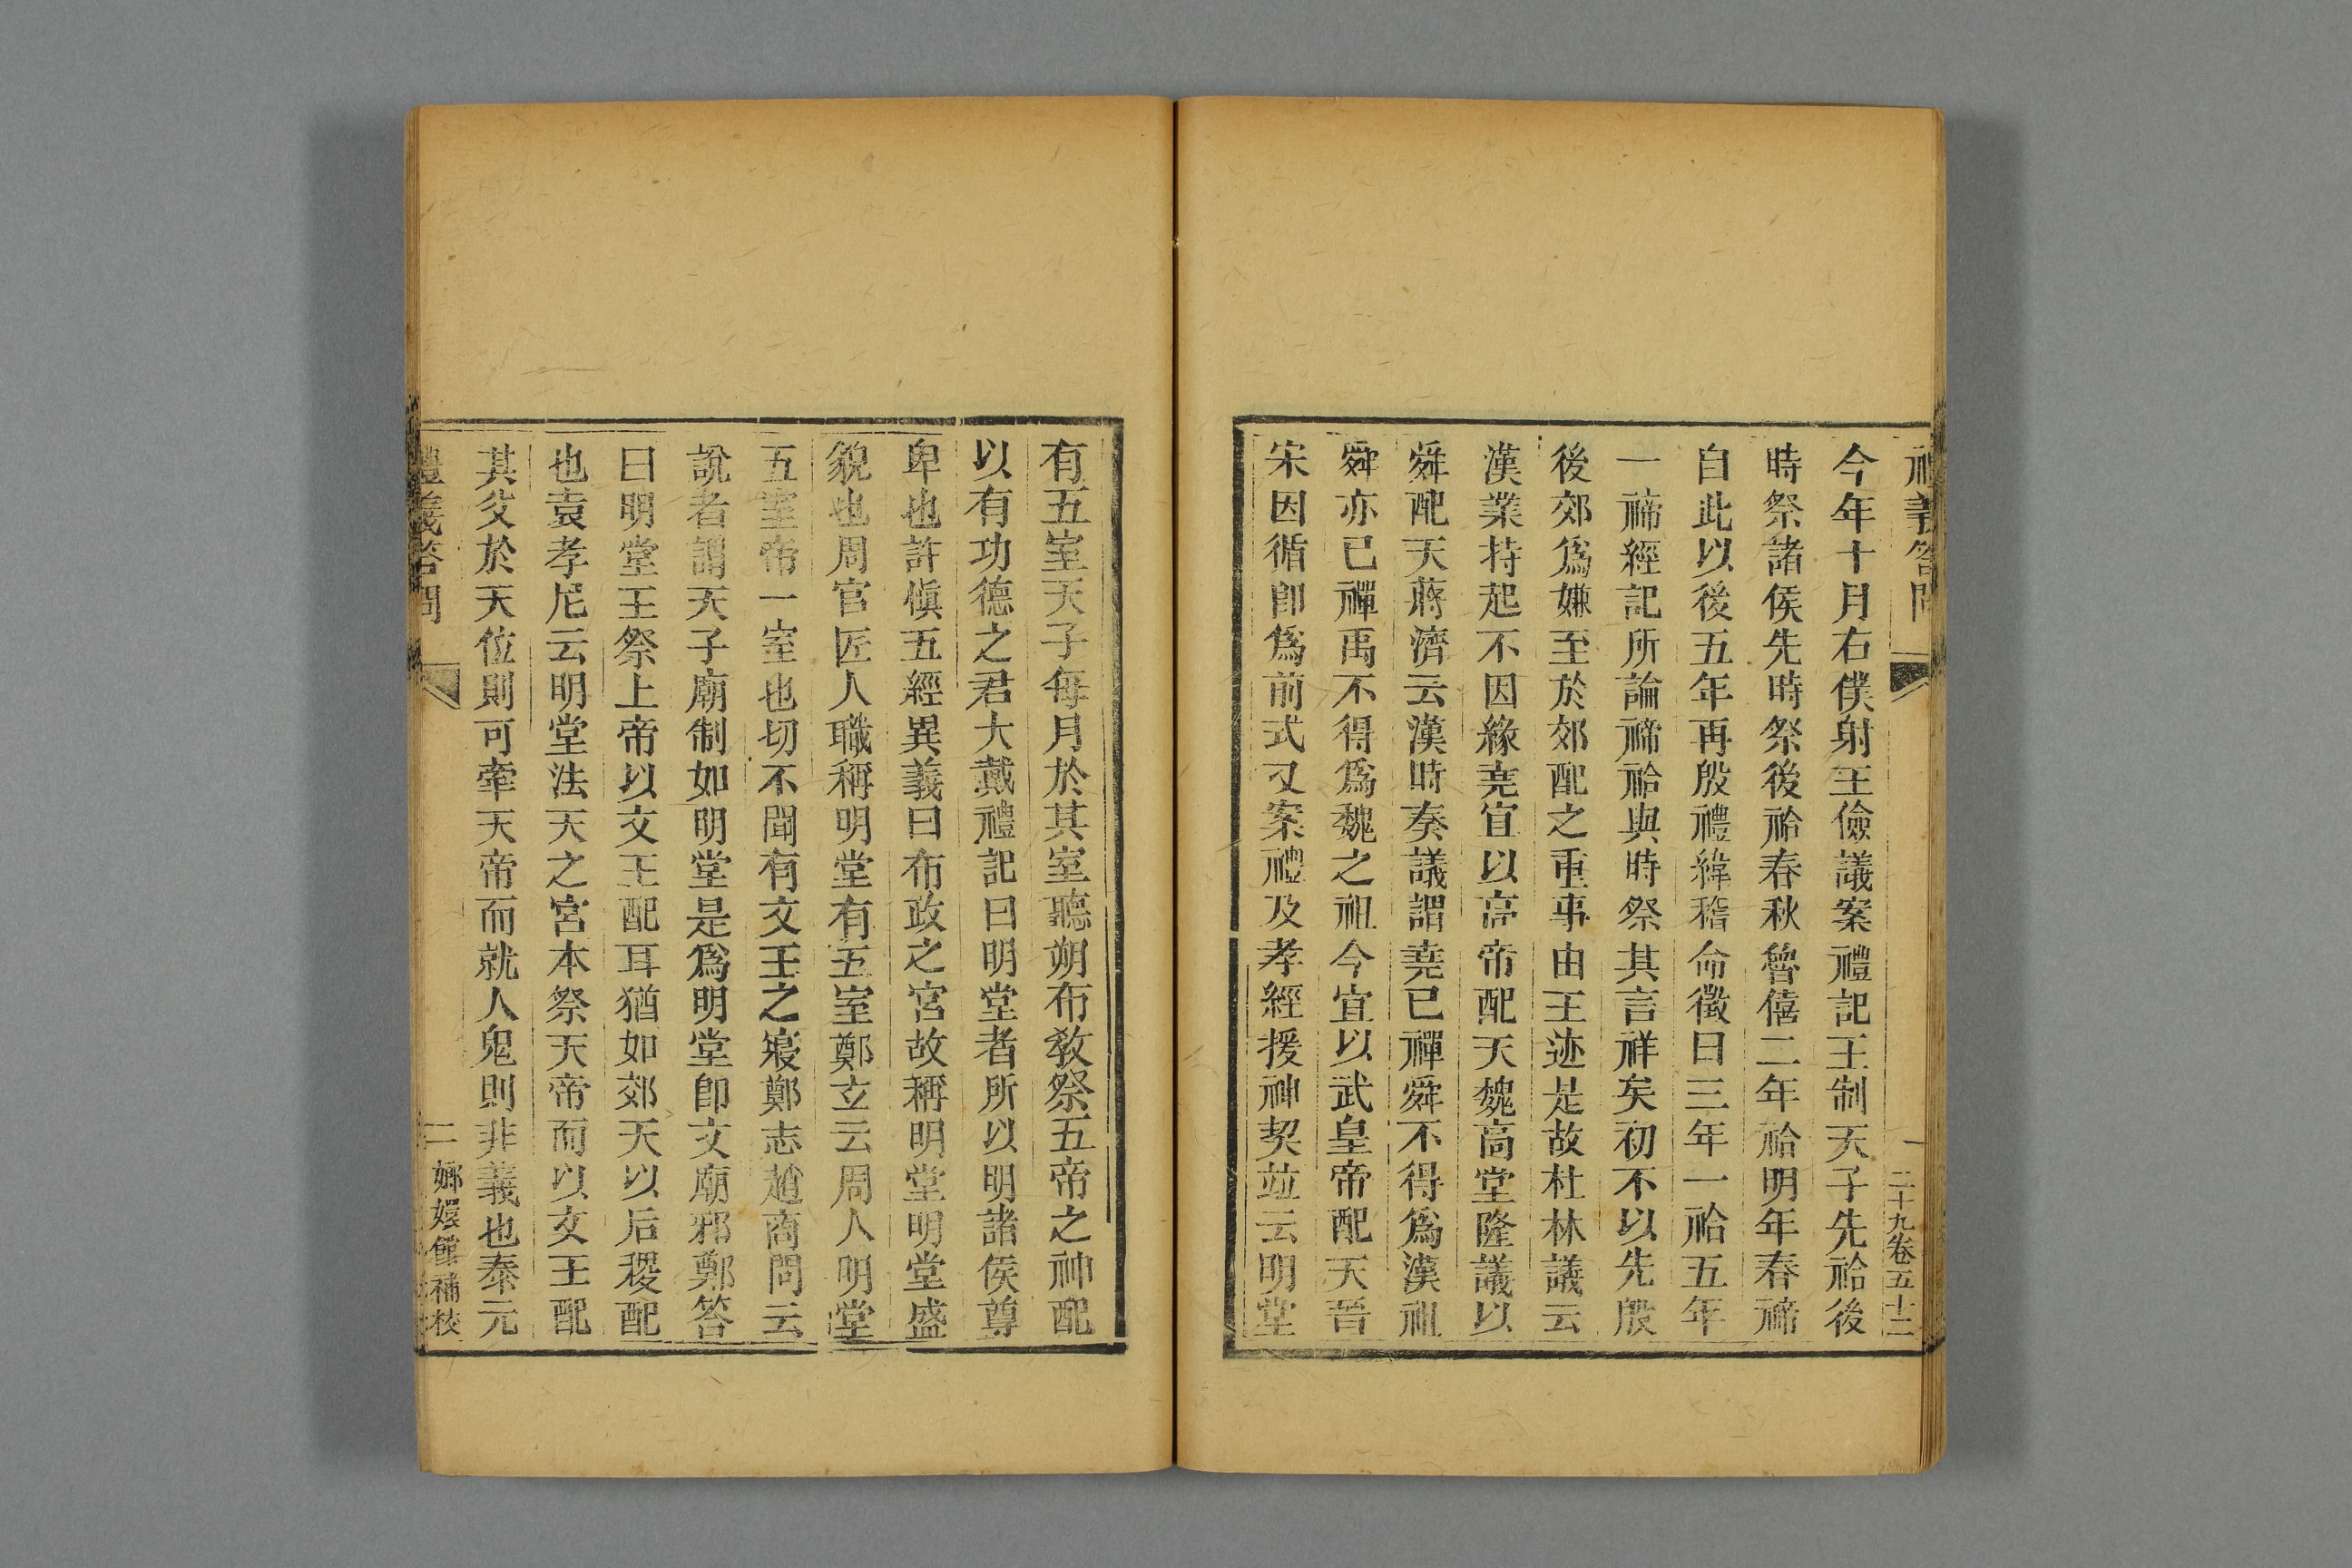 禮義答問
一
二十九卷五十三
今年十月右僕射王儉議案禮記王制天子先祫後
時祭諸侯先時祭後祫春秋魯僖二年祫明年春禘
自此以後五年再殷禮緯稽命徵曰三年一祫五年
一禘經記所論禘祫與時祭其言祥矣初不以先殷
後郊爲嫌至於郊配之重事由王迹是故杜林議云
漢業持起不因緣堯宜以高帝配天魏高堂隆議以
舜配天蔣濟云漢時奏議謂堯已禪舜不得爲漢祖
舜亦已禪禹不得爲魏之祖今宜以武皇帝配天晉
宋因循卽爲前式又案禮及孝經援神契竝云明堂
有五室天子每月於其室聽朔布敎祭五帝之神配
以有功德之君大戴禮記曰明堂者所以明諸侯尊
卑也許愼五經異義曰布政之宮故稱明堂明堂盛
貌也周官匠人職稱明堂有五室鄭玄云周人明堂
五室帝一室也切不聞有文王之寢鄭志趙商問云
說者謂天子廟制如明堂是爲明堂卽文廟邪鄭答
曰明堂王祭上帝以文王配耳猶如郊天以后稷配
也袁孝尼云明堂法天之宮本祭天帝而以文王配
其父於天位則可牽天帝而就人鬼則非義也泰元
禮義答問
二
嫏嬛館補校